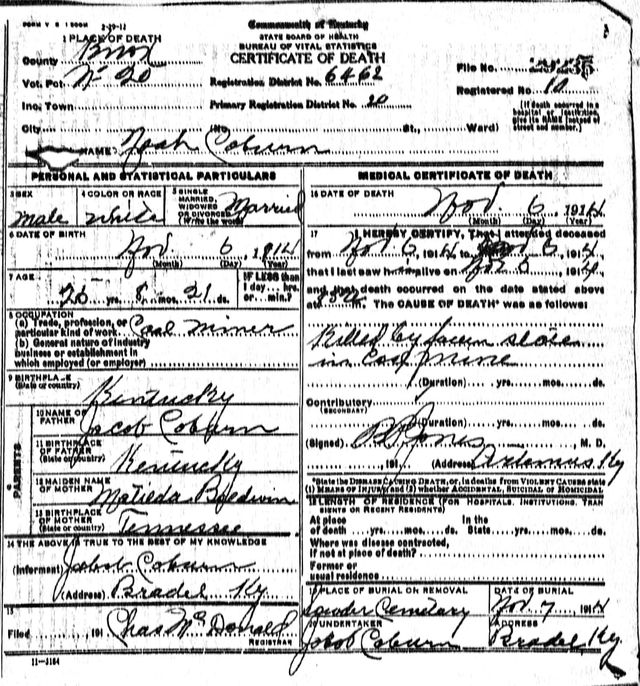 FORM V. S. 1 500M 2-19-12
Commonwealth of Kentucky
STATE BOARD OF HEALTH
BUREAU OF VITAL STATISTICS
CERTIFICATE OF DEATH
1 PLACE OF DEATH
County Knox
Vot. Pct. No 20
Inc. Town
City
Registration District No. 6462
Primary Registration District No. 20
(No. St., Ward)
File No.
Registered No. 10
[If death occurred in a hospital or institution, give its NAME instead of street and number.]
NAME Noah Coburn
PERSONAL AND STATISTICAL PARTICULARS
3 SEX Male
4 COLOR OR RACE White
5 SINGLE MARRIED, WIDOWED OR DIVORCED (Write the word) Married
6 DATE OF BIRTH
Nov. 6, 1914
(Month) (Day) (Year)
7 AGE 26 yrs. 8 mos. 21 ds.
IF LESS than 1 day... hrs. or... min.?
8 OCCUPATION
(a) Trade, profession, or particular kind of work Coal miner
(b) General nature of industry business or establishment in which employed (or employer)
9 BIRTHPLACE (State or country) Kentucky
PARENTS
10 NAME OF FATHER Jacob Coburn
11 BIRTHPLACE OF FATHER (State or country) Kentucky
12 MAIDEN NAME OF MOTHER Matilda Baldwin
13 BIRTHPLACE OF MOTHER (State or country) Tennessee
14 THE ABOVE IS TRUE TO THE BEST OF MY KNOWLEDGE
(Informant) Jacob Coburn
(Address) Ky
15
Filed 191 Chas McDonald
REGISTRAR
11-3184
MEDICAL CERTIFICATE OF DEATH
16 DATE OF DEATH
Nov. 6, 1914
(Month) (Day) (Year)
17 I HEREBY CERTIFY, That I attended deceased
from Nov 6, 1914 to Nov 6, 1914
that I last saw h alive on Nov 6, 1914
and that death occurred on the date stated above
at m. The CAUSE OF DEATH* was as follows:
Killed by slate
in Coal Mine
(Duration) yrs. mos. ds.
Contributory
(SECONDARY)
(Duration) yrs. mos. ds.
(Signed) Jones, M. D.
, 191 (Address) Artemus Ky
*State the DISEASE CAUSING DEATH, or, in deaths from VIOLENT CAUSES state (1) MEANS OF INJURY; and (2) whether ACCIDENTAL, SUICIDAL OR HOMICIDAL
18 LENGTH OF RESIDENCE (FOR HOSPITALS, INSTITUTIONS, TRANSIENTS OR RECENT RESIDENTS)
At place of death yrs. mos. ds.
In the State yrs. mos. ds.
Where was disease contracted, If not at place of death?
Former or usual residence
19 PLACE OF BURIAL OR REMOVAL
Cemetary
DATE OF BURIAL
Nov. 7 1914
20 UNDERTAKER
Jacob Coburn
ADDRESS
Ky.